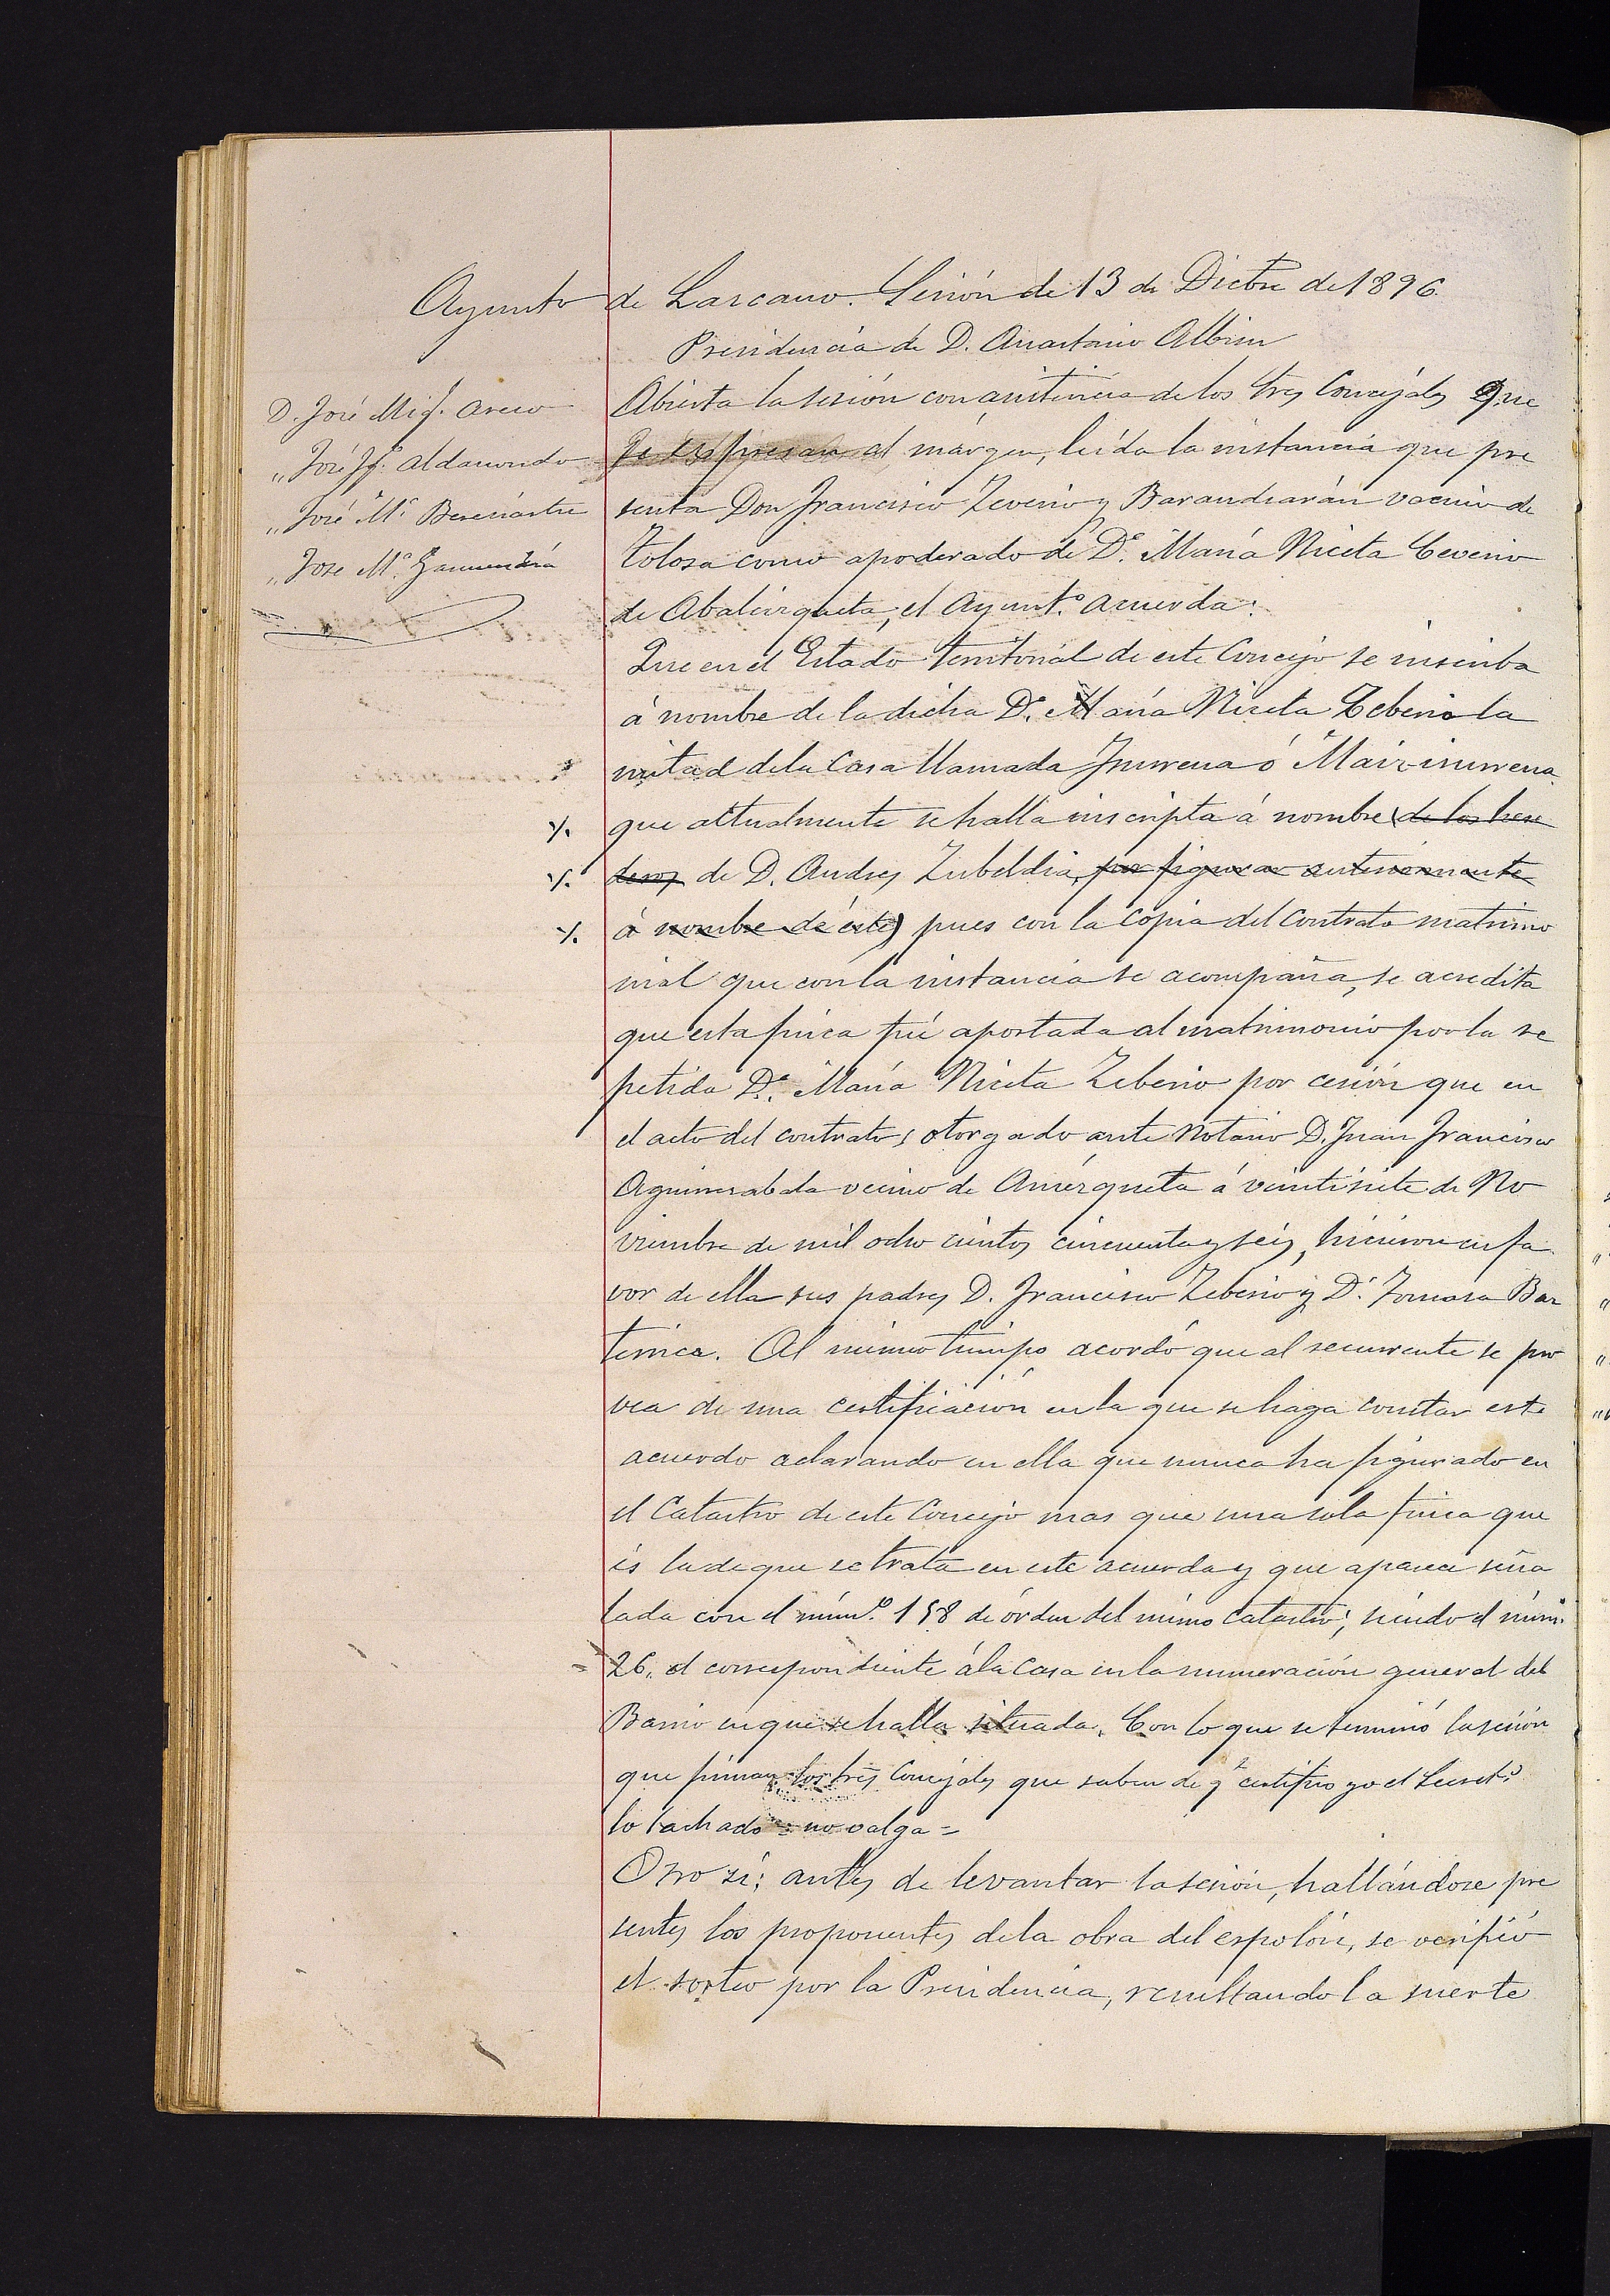 Ayunto de Lazcano. Sesión de 13 de Dicbre de 1896.
Presidencia de D. Anastasio Albisu
D. José Mig.l Areso
„ José Ig.o Aldanondo
„ José M.a Berenástre
„ Jose M.a Garmendia
Abierta la sesión con asistencia de los tres Concejales que
se espresan al márgen, leída la instancia que pre
senta Don Francisco Zeverio y Barandiarán vecino de
Tolosa como apoderado de D.a María Niceta Ceverio
de Abalcizqueta, el Ayunt.o acuerda:
Que en el Estado territorial de este Concejo se inscriba
á nombre de la dicha D.a María Niceta Zeberio la
mitad de la Casa llamada Inurrena ó Maiz-inurrena
que actualmente se halla inscripta á nombre (de los here
deros de D. Andres Zubeldia, por figurar anteriormente
á nombre de éste) pues con la copia del contrato matrimo
nial que con la instancia se acompaña, se acredita
que esta finca fué aportada al matrimonio por la re
petida D.a María Niceta Zeberio por cesión que en
el acto del contrato, otorgado ante Notario D. Juan Francisco
Aguinzabala vecino de Amézqueta á veintisiete de No
viembre de mil ocho cientos cincuenta y seis, hicieron en fa
vor de ella sus padres D. Francisco Zeberio y D.a Tomasa
Al mismo tiempo acordó que al recurrente se pro
vea de una certificación en la que se haga constar este
acuerdo aclarando en ella que nunca ha figurado en
el Catastro de este Concejo mas que una sola finca que
és la de que se trata en este acuerdo y que aparece seña
lada con el núm.o 158 de órden del mismo Catastro; siendo el núm.
26, el correspondiente á la Casa en la numeración general del
Barrio en que se halla situada. Con lo que se terminó la sesión
que firman los tres Concejales que saben de q.e certifico yo el Secret.o
lo tachado = no valga =
Otro sí; antes de levantar la sesión, hallándose pre
sentes los proponentes de la obra del espolón, se verificó
el sorteo por la Presidencia, resultando la suerte